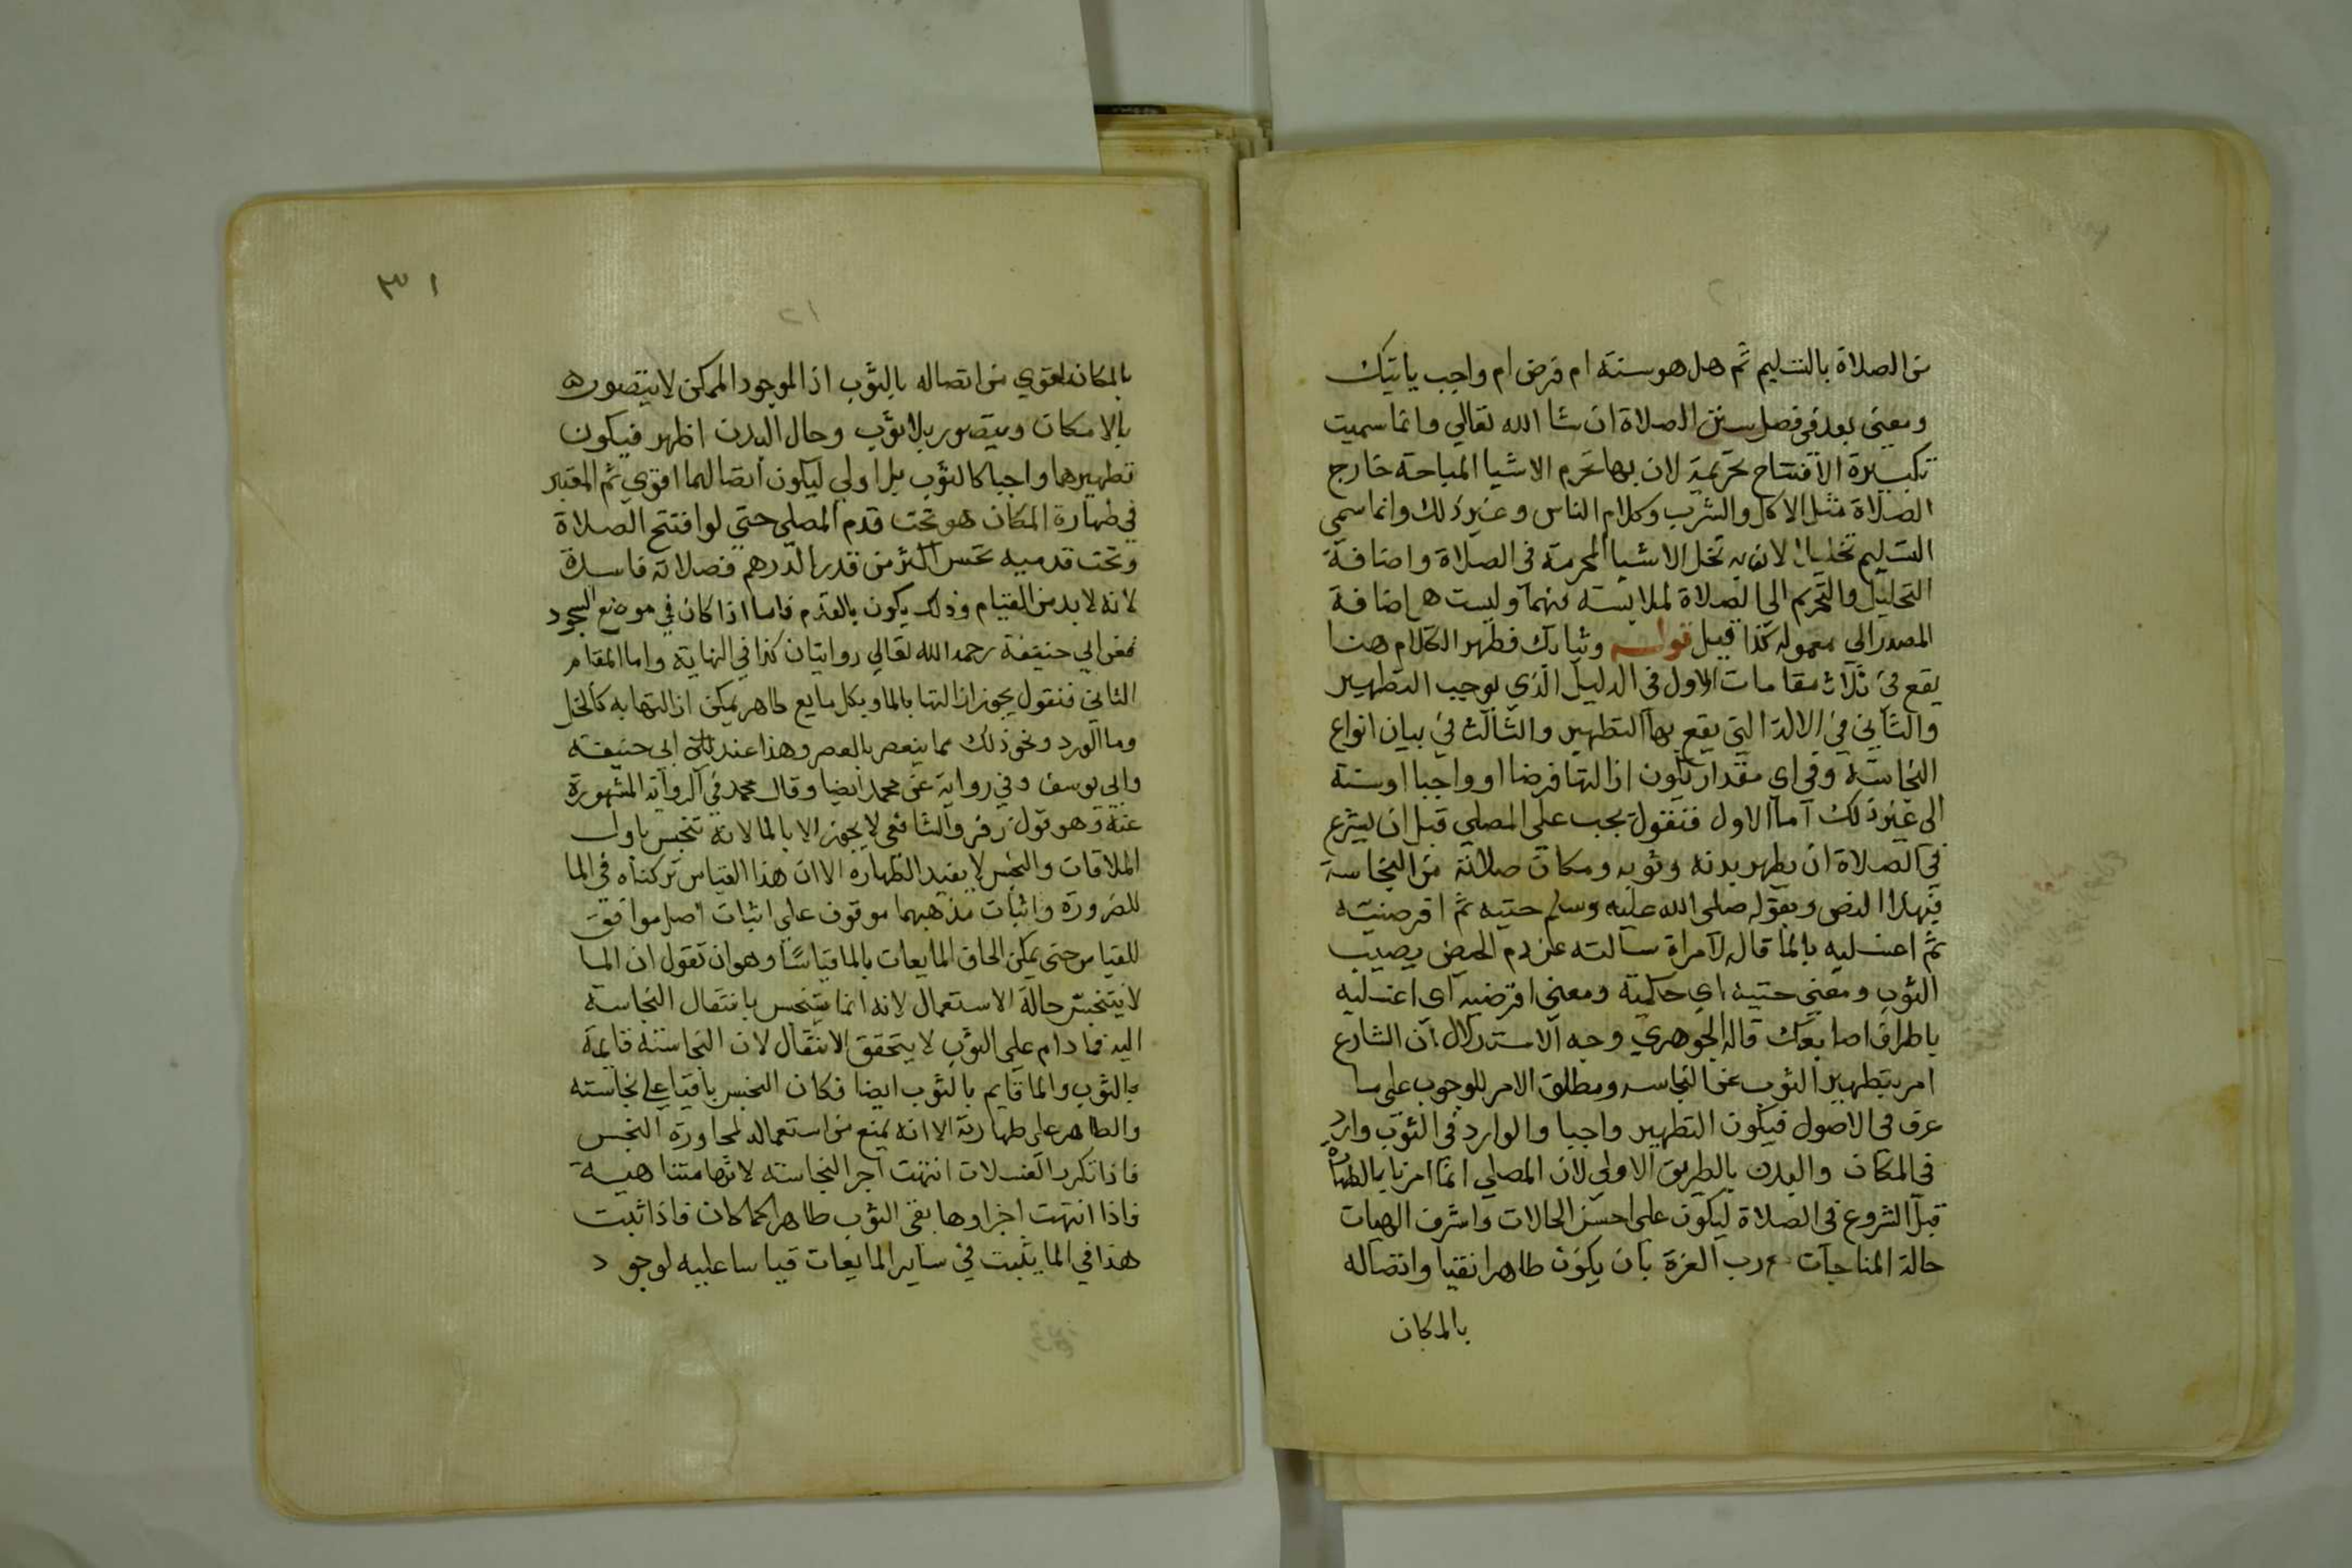 من الصلاة بالتسليم ثم هل هو سنة ام فرض ام واجب ياتيك
ومعنى بعد في فصل سنن الصلاة ان شا الله تعالي وانما سميت
تكبيرة الافتتاح تحريمة لان بها تحرم الاشيا المباحة خارج
الصلاة مثل الاكل والشرب وكلام الناس وغير ذلك وانما سمي
التسليم تحليلا لان به تحل الاشيا المحرمة في الصلاة واضافة
التحليل والتحريم الي الصلاة لملابسته بينهما وليست هي اضافة
المصدر الي معموله كذا قيل قوله وثيابك فطهر الكلام هنا
يقع في ثلاث مقامات الاول في الدليل الذي يوجب التطهير
والثاني في الالة التي يقع بها التطهير والثالث في بيان انواع
النجاسة وفي اي مقدار تكون ازالتها فرضا او واجبا او سنة
الي غير ذلك اما الاول فنقول يجب علي المصلي قبل ان يشرع
في الصلاة ان يطهر بدنه وثوبه ومكان صلاته من النجاسة
بهذا النص وبقوله صلي الله عليه وسلم حتيه ثم اقرضيه
ثم اغسليه بالما قاله لامراة سالته عن دم الحيض يصيب
الثوب ومعني حتيه اي حكيه ومعني اقرضيه اي اغسليه
باطراف اصابعك قاله الجوهري وجه الاستدلال ان الشارع
امر بتطهير الثوب عن النجاسه ومطلق الامر للوجوب علي ما
عرف في الاصول فيكون التطهير واجبا والوارد في الثوب وارد
في المكان والبدن بالطريق الاولي لان المصلي انما امرنا بالطهارة
قبل الشروع في الصلاة ليكون علي احسن الحالات واشرف الهيات
حالة المناجات مع رب العزة بان يكون طاهرا نقيا واتصاله
بالمكان
٣١
٢١
بالمكان اقوي من اتصاله بالثوب اذ الموجود الممكن لا يتصوره
بلا مكان ويتصور بلا ثوب وحال البدن اظهر فيكون
تطهيرهما واجبا كالثوب بل اولي ليكون اتصالهما اقوي ثم المعتبر
في طهارة المكان هو تحت قدم المصلي حتي لو افتتح الصلاة
وتحت قدميه نجس اكثر من قدر الدرهم فصلاته فاسدة
لانه لا بد من القيام وذلك يكون بالقدم فاما اذا كان في موضع السجود
فعن ابي حنيفة رحمه الله تعالي روايتان كذا في النهاية واما المقام
الثاني فنقول يجوز ازالتها بالما وبكل مايع طاهر يمكن ازالتها به كالخل
وما الورد ونحو ذلك مما ينعصر بالعصر وهذا عند ابي حنيفة
وابي يوسف وفي رواية عن محمد ايضا وقال محمد في الرواية المشهورة
عنه وهو قول زفر والشافعي لا يجوز الا بالما لانه تنجس باول
الملاقات والنجس لا يفيد الطهارة الا ان هذا القياس تركناه في الما
للضرورة واثبات مذهبهما موقوف علي اثبات اصل موافق
للقياس حتي يمكن الحاق المايعات بالما قياسا وهو ان نقول ان الما
لا يتنجس حالة الاستعمال لانه انما يتنجس بانتقال النجاسة
اليه فما دام علي الثوب لا يتحقق الانتقال لان النجاسة قايمة
بالثوب والما قايم بالثوب ايضا فكان النجس باقيا علي نجاسته
والطاهر علي طهارته الا انه يمنع من استعماله لمجاورة النجس
فاذا تكرر الغسلات انتهت اجز النجاسة لانها متناهية
فاذا انتهت اجزاوها بقي الثوب طاهرا كما كان فاذا ثبت
هذا في الما يثبت في ساير المايعات قياسا عليه لوجود